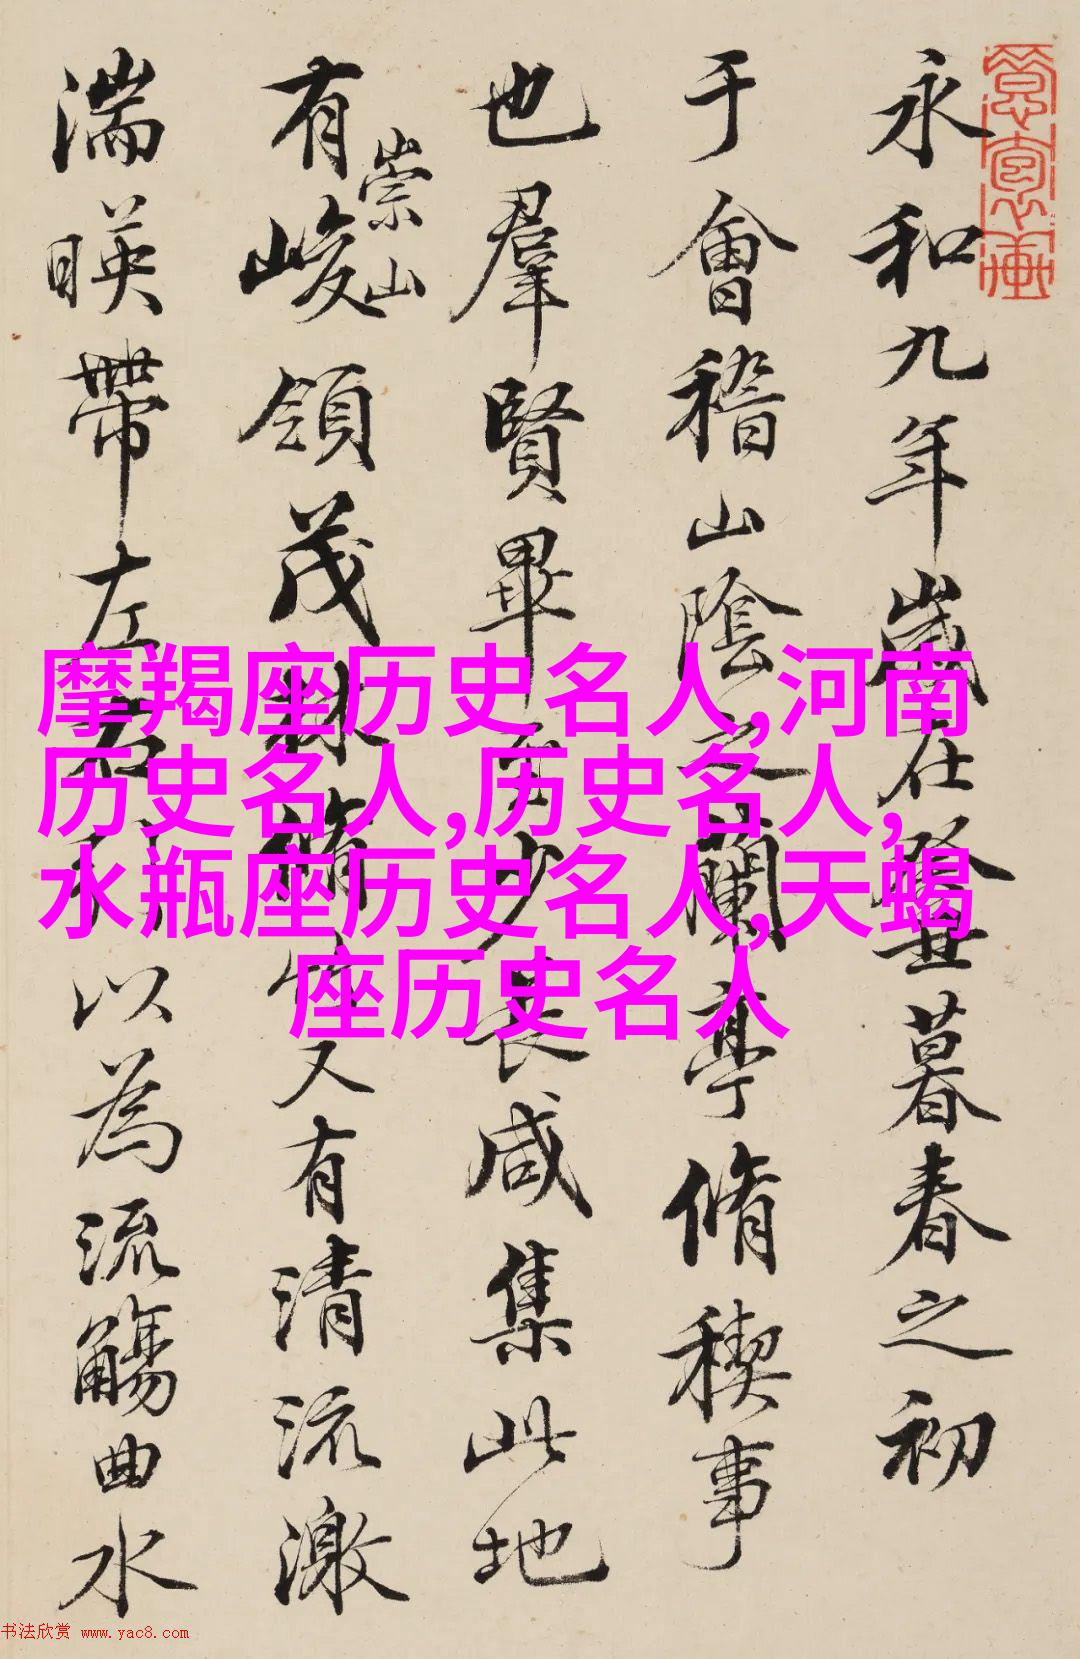 永和九年歲在暮春之初
于會稽山陰之蘭亭脩稧事
也羣賢畢至少長咸集此地
有崇山峻領茂林脩竹又有清流激
湍暎帶左右以為流觴曲水
摩羯座历史名人,河南
历史名人,历史名人,
水瓶座历史名人,天蝎
座历史名人
书法欣赏 www.yac8.com